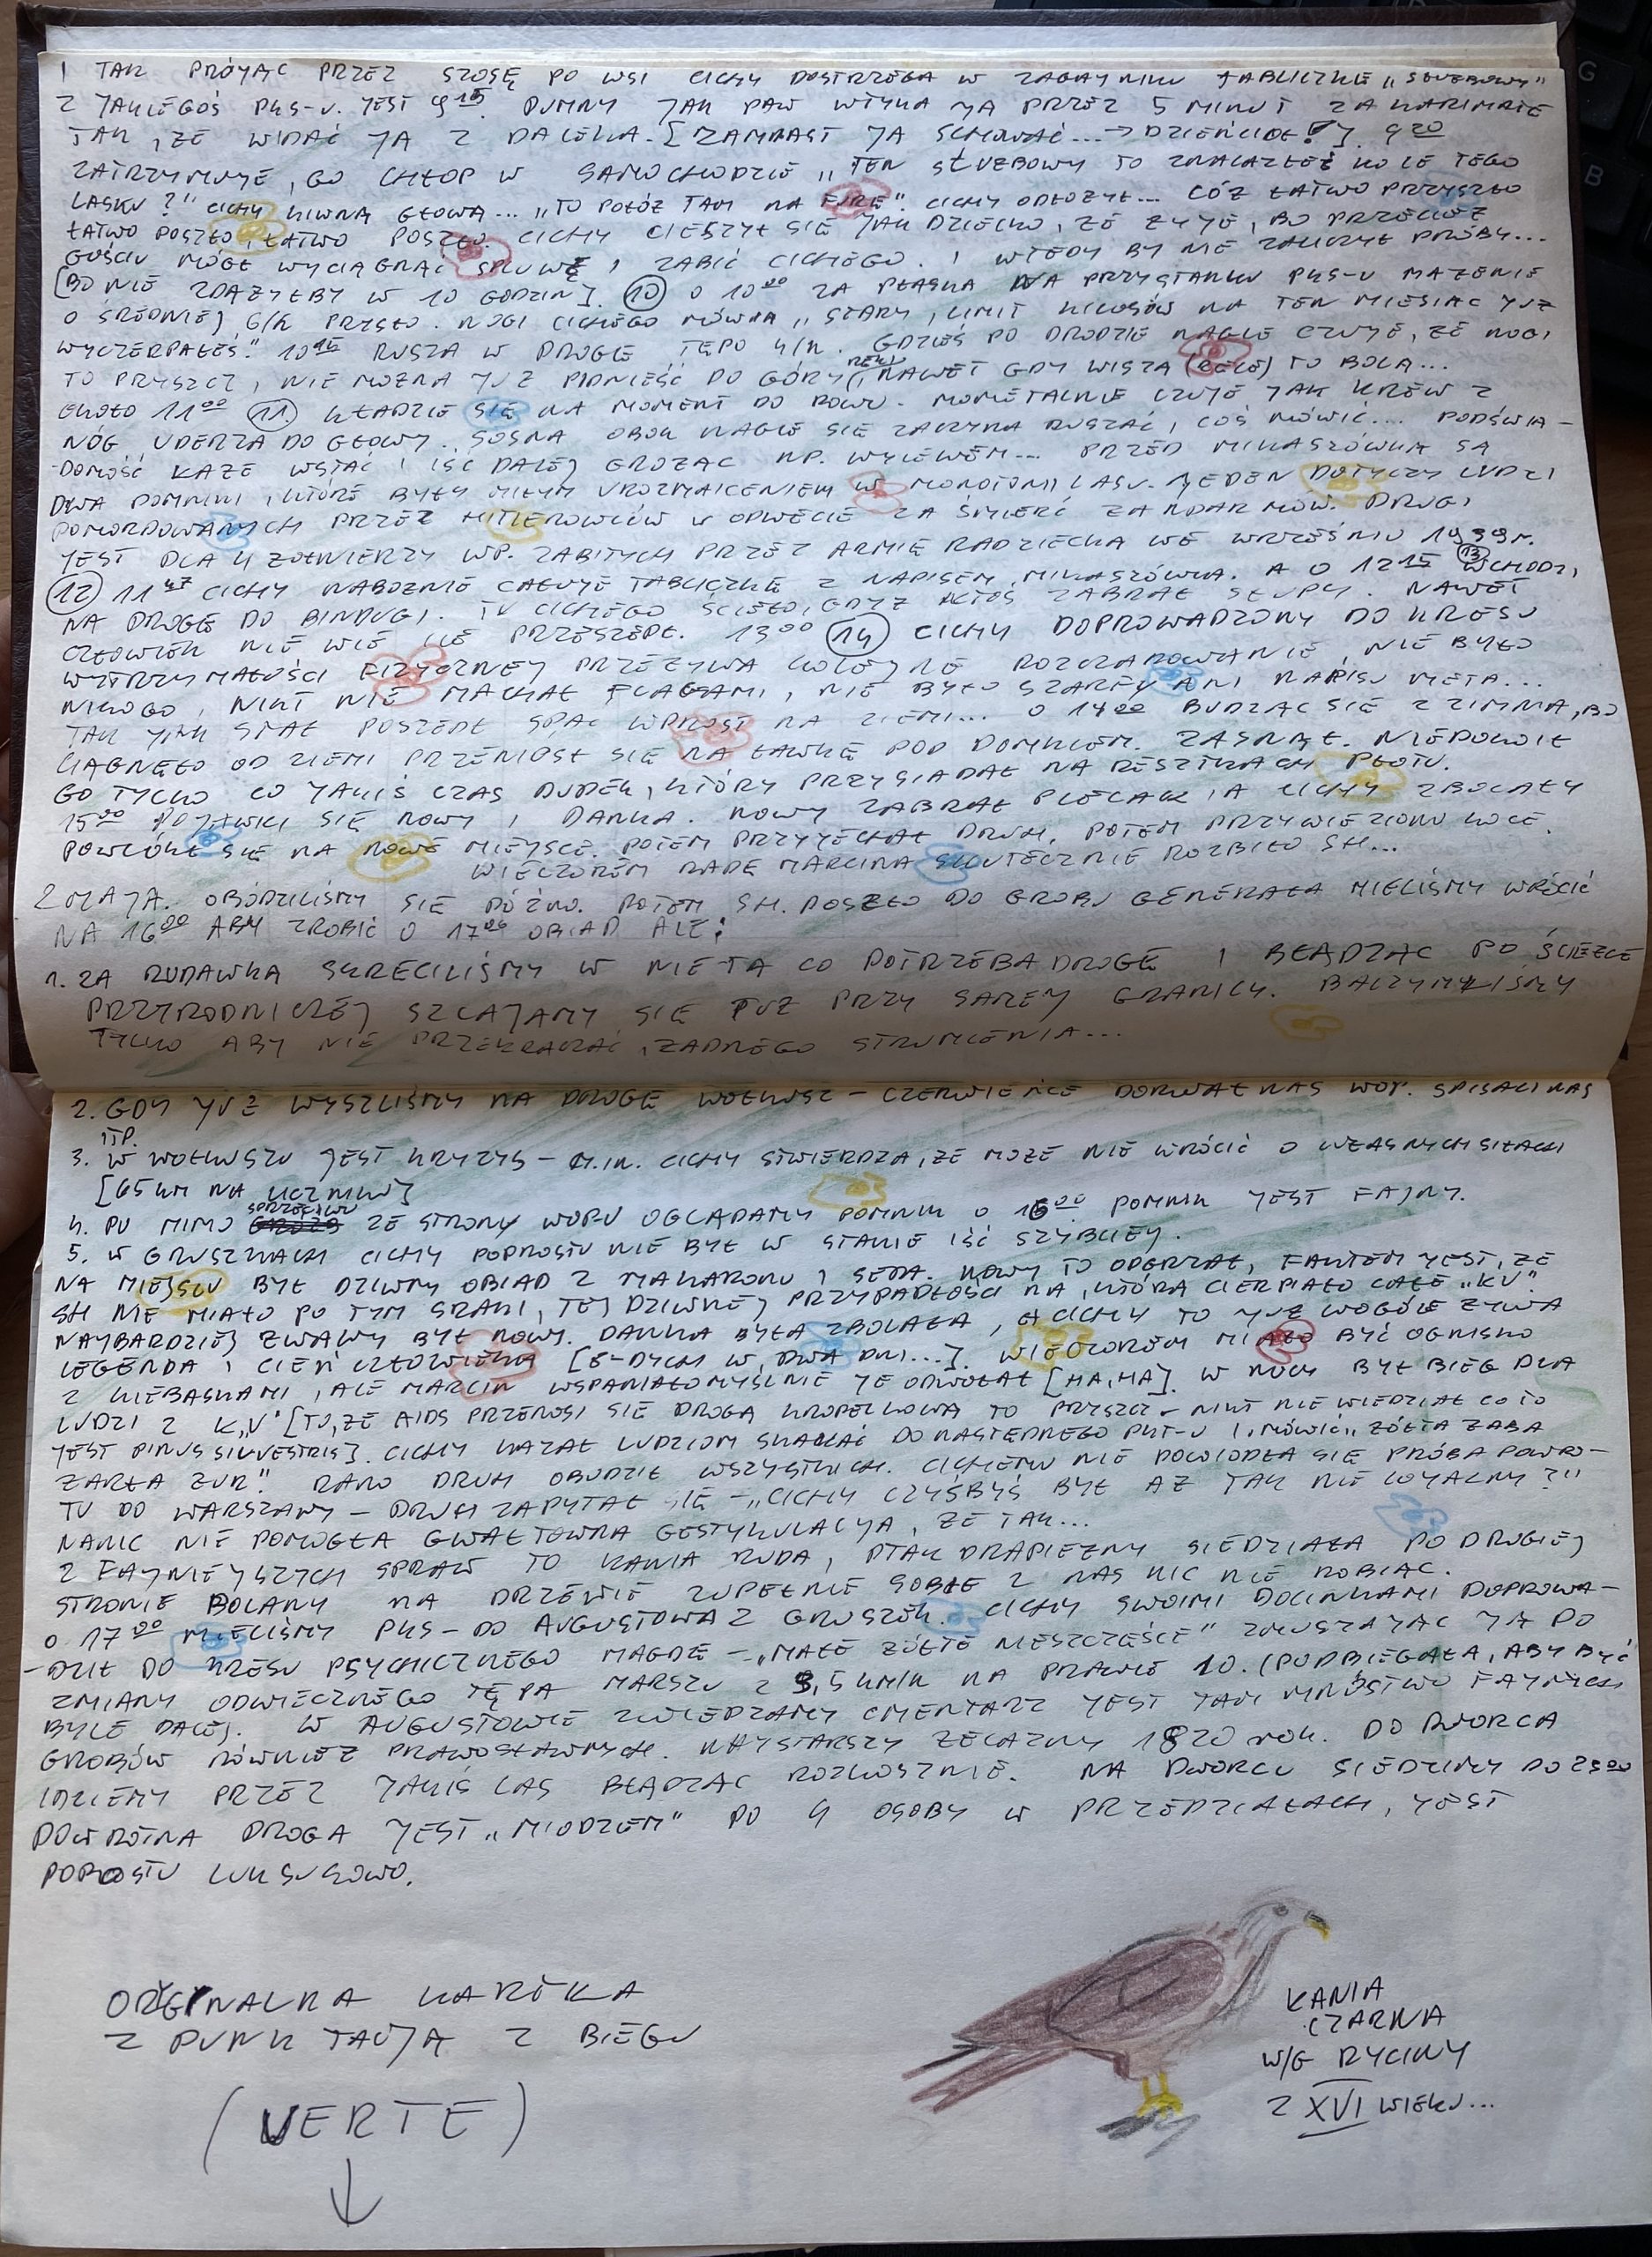 I TAK PRÓJĄC PRZEZ SZOSĘ PO WSI CICHY DOSTRZEGA W ZAGAJNIKU TABLICZKĘ „SŁUŻBOWY"
Z JAKIEGOŚ PKS-U. JEST 9 15 DUMNY JAK PAW WTYKA JĄ PRZEZ 5 MINUT ZA KARIMATĘ
TAK, ŻE WIDAĆ JĄ Z DALEKA. [ZAMIAST JĄ SCHOWAĆ... → DZIECIOE!]. 9 20
ZATRZYMUJE, GO CHŁOP W SAMOCHODZIE „TEN SŁUŻBOWY TO ZNALAZŁEŚ KOLE TEGO
LASKU?" CICHY KIWNĄ GŁOWĄ... „TO POŁÓŻ TAM NA FURĘ". CICHY ODŁOŻYŁ... CÓŻ ŁATWO PRZYSZŁO
ŁATWO POSZŁO, ŁATWO POSZŁO. CICHY CIESZYŁ SIĘ JAK DZIECKO, ŻE ŻYJE, BO PRZECIEŻ
GOŚCIU MÓGŁ WYCIĄGNĄĆ SPLUWĘ I ZABIĆ CICHEGO. I WTEDY BY NIE ZALICZYŁ PRÓBY...
[BO NIE ZDĄŻYŁBY W 10 GODZIN]. (10) O 10 00 ZA PŁASKĄ NA PRZYSTANKU PKS-U MARZENIE
O ŚREDNIEJ 6/H PRYSŁO. NOGI CICHEGO MÓWIĄ „STARY, LIMIT KILOSÓW NA TEN MIESIĄC JUŻ
WYCZERPAŁEŚ." 10 15 RUSZA W DROGĘ TĘPO 4/H. GDZIEŚ PO DRODZE NAGLE CZUJE, ŻE NOGI
TO PRYSZCZ, NIE MOŻNA JUŻ PODNIEŚĆ DO GÓRY RĘKI, NAWET GDY WISZĄ (RĘCE) TO BOLĄ...
OKOŁO 11 00 (11) KŁADZIE SIĘ NA MOMENT DO ROWU. MOMĘTALNIE CZUJE JAK KREW Z
NÓG UDERZA DO GŁOWY. SOSNA OBOK NAGLE SIĘ ZACZYNA RUSZAĆ, COŚ MÓWIĆ... PODŚWIA-
-DOMOŚĆ KAŻE WSTAĆ I IŚĆ DALEJ GROŻĄC NP. WYLEWEM... PRZED MIKASZÓWKĄ SĄ
DWA POMNIKI, KTÓRE BYŁY MIŁYM UROZMAICENIEM W MONOTONII LASU. JEDEN DOTYCZY LUDZI
POMORDOWANYCH PRZEZ HITLEROWCÓW W ODWECIE ZA ŚMIERĆ ŻANDARMÓW. DRUGI
JEST DLA 4 ŻOŁNIERZY WP. ZABITYCH PRZEZ ARMIĘ RADZIECKĄ WE WRZEŚNIU 1939 r.
(12) 11 47 CICHY NABOŻNIE CAŁUJE TABLICZKĘ Z NAPISEM „MIKASZÓWKA. A O 12 15 (13) WCHODZI
NA DROGĘ DO BINDUGI. TU CICHEGO ŚCIĘŁO, GDYŻ KTOŚ ZABRAŁ SŁUPKI. NAWET
CZŁOWIEK NIE WIE ILE PRZESZEDŁ. 13 00 (14) CICHY DOPROWADZONY DO KRESU
WYTRZYMAŁOŚCI FIZYCZNEJ PRZEŻYWA KOLEJNE ROZCZAROWANIE, NIE BYŁO
NIKOGO, NIKT NIE MACHAŁ FLAGAMI, NIE BYŁO SZARFY ANI NAPISU META...
TAK JAK STAŁ POSZEDŁ SPAĆ WPROST NA ZIEMI... O 14 00 BUDZĄC SIĘ Z ZIMNA, BO
CIĄGNĘŁO OD ZIEMI PRZENIÓSŁ SIĘ NA ŁAWKĘ POD DOMKIEM. ZASNĄŁ. NIEPOKOIŁ
GO TYLKO CO JAKIŚ CZAS DUDEK, KTÓRY PRZYSIADAŁ NA RESZTKACH PŁOTU.
15 00 POJAWILI SIĘ NOWY I DANKA. NOWY ZABRAŁ PLECAK, A CICHY ZBOLAŁY
POWLÓKŁ SIĘ NA NOWE MIEJSCE. POTEM PRZYJECHAŁ DRUH, POTEM PRZYWIEZIONO KOCE.
WIECZOREM RADĘ MARCINA SKUTECZNIE ROZBIŁO SH...
2 MAJA. OBÓDZILIŚMY SIĘ PÓŹNO. POTEM SH. POSZŁO DO GROBU GENERAŁA MIELIŚMY WRÓCIĆ
NA 16 00 ABY ZROBIĆ O 17 00 OBIAD ALE:
1. ZA RUDAWKĄ SKRĘCILIŚMY W NIE TĄ CO POTRZEBA DROGĘ I BŁĄDZĄC PO ŚCIEŻCE
PRZYRODNICZEJ SZLAJAMY SIĘ TUŻ PRZY SAMEJ GRANICY. BACZYMYLIŚMY
TYLKO ABY NIE PRZEKRACZAĆ, ŻADNEGO STRUMIENIA...
2. GDY JUŻ WYSZLIŚMY NA DROGĘ WOŁKUSZ – CZERWIEŃCE DORWAŁ NAS WOP. SPISALI NAS
ITP.
3. W WOŁKUSZU JEST KRYZYS – M.IN. CICHY STWIERDZA, ŻE MOŻE NIE WRÓCIĆ O WŁASNYCH SIŁACH
[65 KM NA LICZNIKU]
4. PO MIMO SPRZECIWU ZE STRONY WOPU OGLĄDAMY POMNIK O 16 00 POMNIK JEST FAJNY.
5. W GRUSZKACH CICHY POPROSTU NIE BYŁ W STANIE IŚĆ SZYBCIEJ.
NA MIEJSCU BYŁ DZIWNY OBIAD Z MAKARONU I SERA. NOWY TO ODGRZAŁ, FAKTEM JEST, ŻE
SH NIE MIAŁO PO TYM SRAKI, TEJ DZIWNEJ PRZYPADŁOŚCI NA, KTÓRĄ CIERPIAŁO CAŁE „KV"
NAJBARDZIEJ ŻWAWY BYŁ NOWY. DANKA BYŁA ZBOLAŁA, A CICHY TO JUŻ WOGÓLE ŻYWA
LEGENDA I CIEŃ CZŁOWIEKA [8-DYCH W DWA DNI...]. WIECZOREM MIAŁO BYĆ OGNISKO
Z KIEBASKAMI, ALE MARCIN WSPANIAŁOMYŚLNIE JE ODWOŁAŁ [HA, HA]. W NOCY BYŁ BIEG DLA
LUDZI Z K„V" [TO, ŻE AIDS PRZENOSI SIĘ DROGĄ KROPELKOWĄ TO PRYSZCZ – NIKT NIE WIEDZIAŁ CO TO
JEST PINUS SILVESTRIS]. CICHY KAZAŁ LUDZIOM SKAKAĆ DO NASTĘPNEGO PKT-U I MÓWIĆ „ŻÓŁTA ŻABA
ŻARŁA ŻUR". RANO DRUH OBUDZIŁ WSZYSTKICH. CICHEMU NIE POWIODŁA SIĘ PRÓBA POWRO-
TU DO WARSZAWY – DRUH ZAPYTAŁ SIĘ – „CICHY CZYŚBYŚ BYŁ AŻ TAK NIE LOYALNY?"
NA NIC NIE POMOGŁA GWAŁTOWNA GESTYKULACJA, ŻE TAK...
Z FAJNIEJSZYCH SPRAW TO KANIA RUDA, PTAK DRAPIEŻNY SIEDZIAŁA PO DRUGIEJ
STRONIE POLANY NA DRZEWIE ZUPEŁNIE SOBIE Z NAS NIC NIE ROBIĄC.
O 17 00 MIELIŚMY PKS – DO AUGUSTOWA Z GRUSZEK. CICHY SWOIMI DOCINKAMI DOPROWA-
-DZIŁ DO KRESU PSYCHICZNEGO MAGDĘ – „MAŁE ŻÓŁTE NIESZCZĘŚCIE" ZMUSZAJĄC JĄ DO
ZMIANY ODWIECZNEGO TĘPA MARSZU Z 3,5 KM/H NA PRAWIE 10. (PODBIEGAŁA, ABY BYĆ
BYLE DALEJ. W AUGUSTOWIE ZWIEDZAMY CMENTARZ JEST TAM MNÓSTWO FAJNYCH
GROBÓW RÓWNIEŻ PRAWOSŁAWNYCH. NAJSTARSZY ŻELAZNY 1820 rok. DO DWORCA
IDZIEMY PRZEZ JAKIŚ LAS BŁĄDZĄC ROZKOSZNIE. NA DWORCU SIEDZIMY DO 23 00
POWROTNA DROGA JEST „MIODZEM" PO 4 OSOBY W PRZEDZIAŁACH, JEST
POPROSTU LUKSUSOWO.
ORYGINALNA KARTKA
Z PUNKTACJĄ Z BIEGU
(VERTE)
KANIA
CZARNA
W/G RYCINY
Z XVI WIEKU...